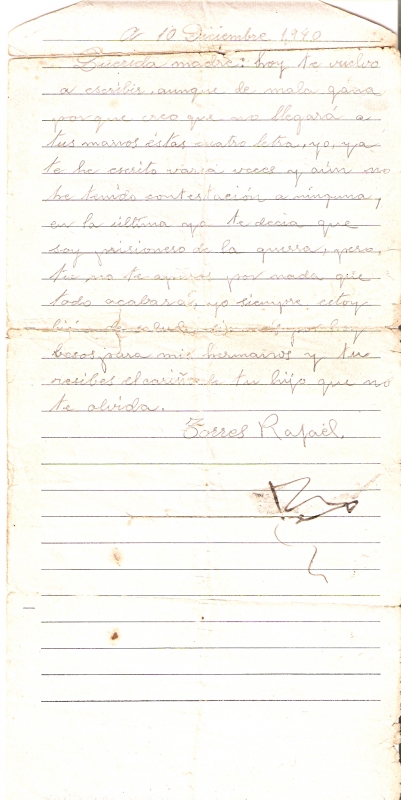 A 10 Diciembre 1,940
Querida madre: hoy te vuelvo
a escribir, aunque de mala gana
porque creo que no llegará a
tus manos éstas cuatro letra, yo, ya
te he escrito varia veces y aún no
he tenido contestación a ninguna,
en la última ya te decia que
soy prisionero de la guerra, pero,
tu, no te apures por nada que
todo acabará, yo siempre estoy
bién de por hoy
besos para mis hermainos y tu
recibes el cariño de tu hijo que no
te olvida.
Torres Rafaél.